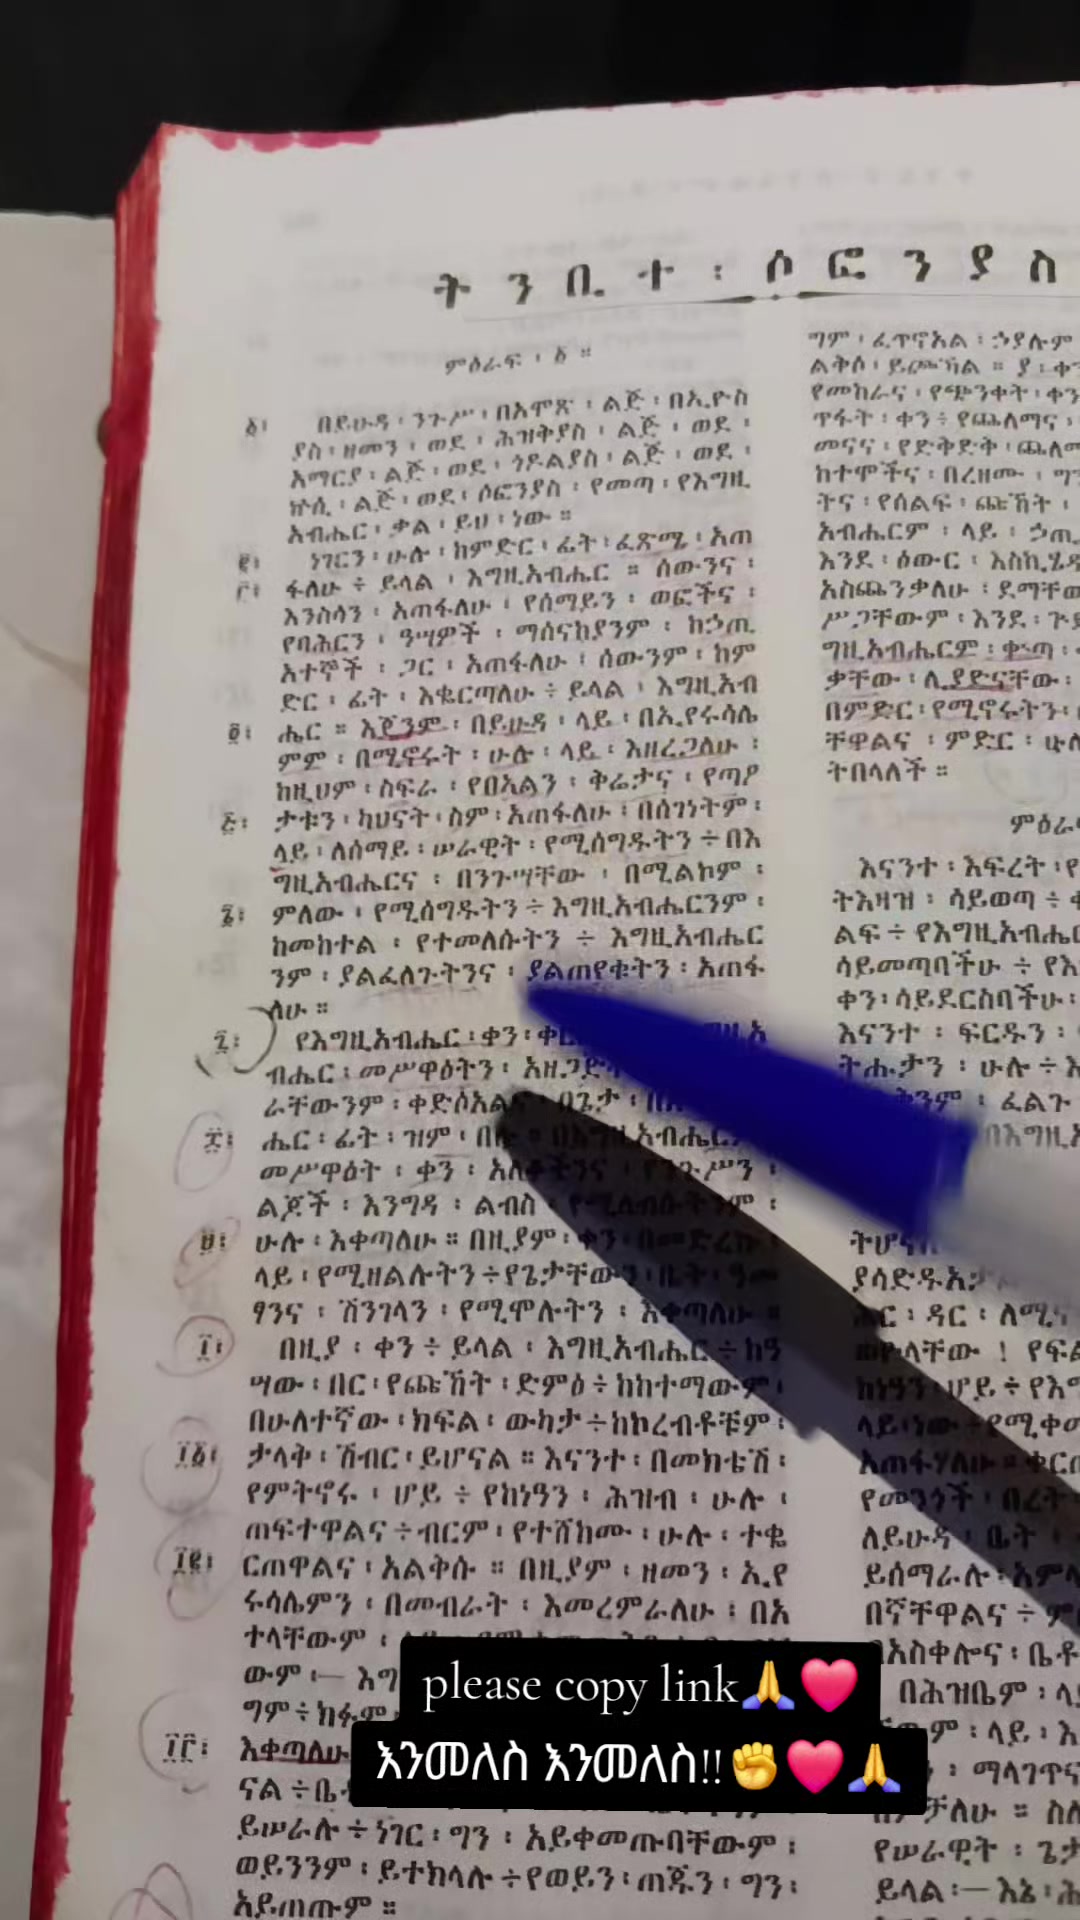 ትንቢተ፡ሶፎንያስ
ምዕራፍ፡፩።
፩፡ በይሁዳ፡ንጉሥ፡በአሞጽ፡ልጅ፡በኢዮስ
ያስ፡ዘመን፡ወደ፡ሕዝቅያስ፡ልጅ፡ወደ፡
አማርያ፡ልጅ፡ወደ፡ጎዶልያስ፡ልጅ፡ወደ፡
ኵሲ፡ልጅ፡ወደ፡ሶፎንያስ፡የመጣ፡የእግዚ
አብሔር፡ቃል፡ይህ፡ነው።
፪፡ ነገርን፡ሁሉ፡ከምድር፡ፊት፡ፈጽሜ፡አጠ
፫፡ ፋለሁ፥ይላል፡እግዚአብሔር። ሰውንና፡
እንስሳን፡አጠፋለሁ፡የሰማይን፡ወፎችና፡
የባሕርን፡ዓሣዎች፡ማሰናከያንም፡ከኃጢ
አተኞች፡ጋር፡አጠፋለሁ፡ሰውንም፡ከም
ድር፡ፊት፡እቈርጣለሁ፥ይላል፡እግዚአብ
፬፡ ሔር። እጄንም፡በይሁዳ፡ላይ፡በኢየሩሳሌ
ምም፡በሚኖሩት፡ሁሉ፡ላይ፡እዘረጋለሁ፡
ከዚህም፡ስፍራ፡የበኣልን፡ቅሬታና፡የጣዖ
፭፡ ታቱን፡ካህናት፡ስም፡አጠፋለሁ፡በሰገነትም፡
ላይ፡ለሰማይ፡ሠራዊት፡የሚሰግዱትን፥በእ
ግዚአብሔርና፡በንጉሣቸው፡በሚልኮም፡
፮፡ ምለው፡የሚሰግዱትን፥እግዚአብሔርንም፡
ከመከተል፡የተመለሱትን፥እግዚአብሔር
ንም፡ያልፈለጉትንና፡ያልጠየቁትን፡አጠፋ
ለሁ።
፯፡ የእግዚአብሔር፡ቀን፡
ብሔር፡መሥዋዕትን፡
ራቸውንም፡ቀድሶአልና፡በጌታ፡
፰፡ ሔር፡ፊት፡ዝም፡በሉ። በእግዚአብሔርም፡
መሥዋዕት፡ቀን፡አለቆችንና፡የንጉሥን፡
ልጆች፡እንግዳ፡ልብስ፡የሚለብሱትንም፡
፱፡ ሁሉ፡እቀጣለሁ። በዚያም፡ቀን፡በመድረኩ፡
ላይ፡የሚዘልሉትን፥የጌታቸውን፡ቤት፡ዓመ
ፃንና፡ሽንገላን፡የሚሞሉትን፡እቀጣለሁ።
፲፡ በዚያ፡ቀን፥ይላል፡እግዚአብሔር፥ከዓ
ሣው፡በር፡የጩኸት፡ድምፅ፥ከከተማውም፡
በሁለተኛው፡ክፍል፡ውካታ፥ከኮረብቶቹም፡
፲፩፡ ታላቅ፡ሽብር፡ይሆናል። እናንተ፡በመክቴሽ፡
የምትኖሩ፡ሆይ፥የከነዓን፡ሕዝብ፡ሁሉ፡
ጠፍተዋልና፥ብርም፡የተሸከሙ፡ሁሉ፡ተቈ
፲፪፡ ርጠዋልና፡አልቅሱ። በዚያም፡ዘመን፡ኢየ
ሩሳሌምን፡በመብራት፡እመረምራለሁ፡በአ
ተላቸውም፡
ውም፡— እግ
ግም፥ክፉም
፲፫፡ እቀጣለሁ
ናል፥ቤቶ
ይሠራሉ፥ነገር፡ግን፡አይቀመጡባቸውም፡
ወይንንም፡ይተክላሉ፥የወይን፡ጠጁን፡ግን፡
አይጠጡም።
ግም፡ፈጥኖአል፡ኃያሉም
ልቅሶ፡ይጮኻል። ያ፡ቀን
የመከራና፡የጭንቀት፡ቀን
ጥፋት፡ቀን፥የጨለማና፡
መናና፡የድቅድቅ፡ጨለማ
ከተሞችና፡በረዘሙ፡ግን
ትና፡የሰልፍ፡ጩኸት፡
አብሔርም፡ላይ፡ኃጢ
እንደ፡ዕውር፡እስኪሄዱ
አስጨንቃለሁ፡ደማቸው
ሥጋቸውም፡እንደ፡ጕድ
ግዚአብሔርም፡ቍጣ፡
ቃቸው፡ሊያድናቸው፡
በምድር፡የሚኖሩትን፡
ቸዋልና፡ምድር፡ሁሉ
ትበላለች።
ምዕራፍ
እናንተ፡እፍረት፡የ
ትእዛዝ፡ሳይወጣ፥
ልፍ፥የእግዚአብሔር
ሳይመጣባችሁ፥የእ
ቀን፡ሳይደርስባችሁ፡
እናንተ፡ፍርዱን፡
ትሑታን፡ሁሉ፥እ
ፈልጉ
በእግዚአ
ያሳድዱአታል
ዳር፡ለሚኖ
ወዮላቸው! የፍል
ከነዓን፡ሆይ፥የእግ
ላይ፡ነው፥የሚቀመ
አጠፋሃለሁ።
የመንጎች፡በረት፡
ለይሁዳ፡ቤት፡
ይሰማራሉ፡አምላ
በኛቸዋልና፥
በአስቀሎና፡ቤቶ
በሕዝቤም፡ላ
ላይ፡እ
ማላገጥና
የሠራዊት፡ጌታ
ይላል፡— እኔ፡
please copy link🙏❤️
እንመለስ እንመለስ!!✊❤️🙏